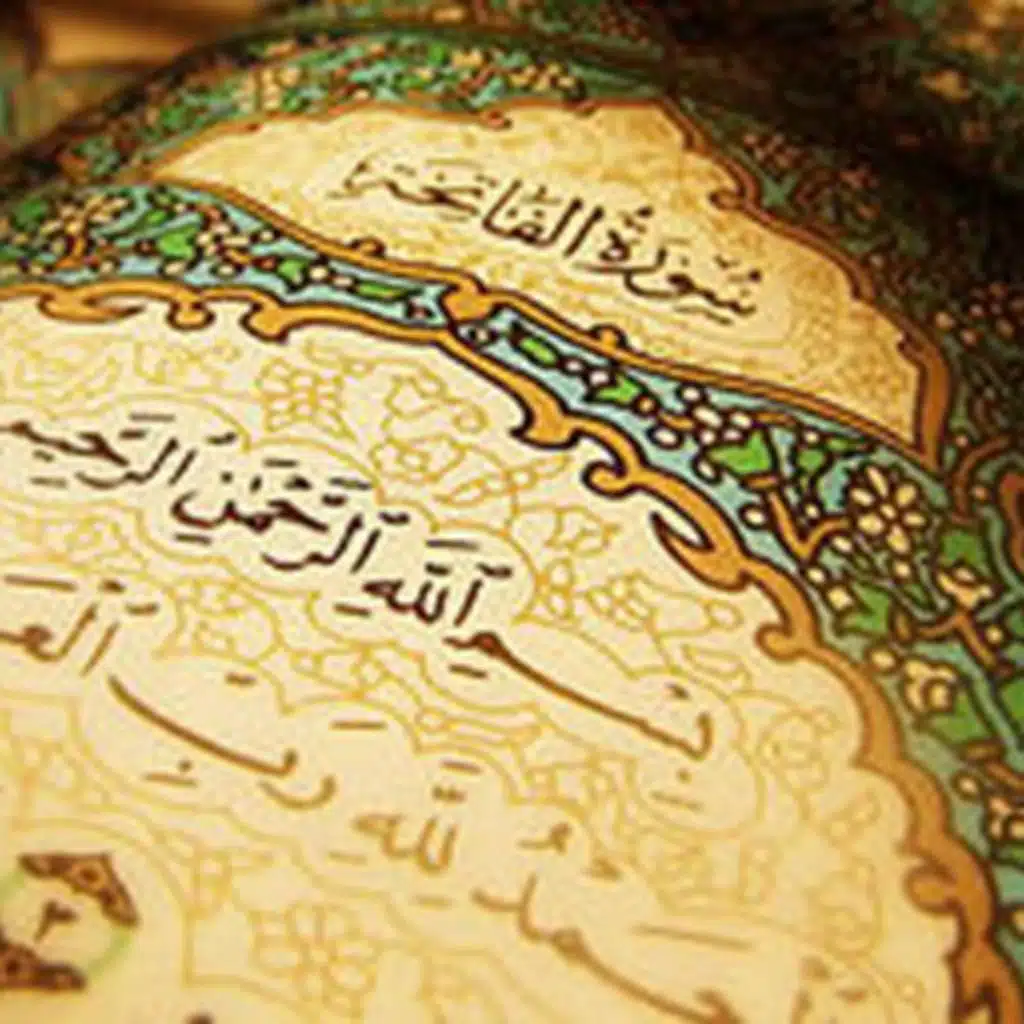 سُورَةُ الْفَاتِحَةِ
بِسْمِ ٱللَّهِ ٱلرَّحْمَٰنِ ٱلرَّحِيمِ
ٱلْحَمْدُ لِلَّهِ رَبِّ
٢